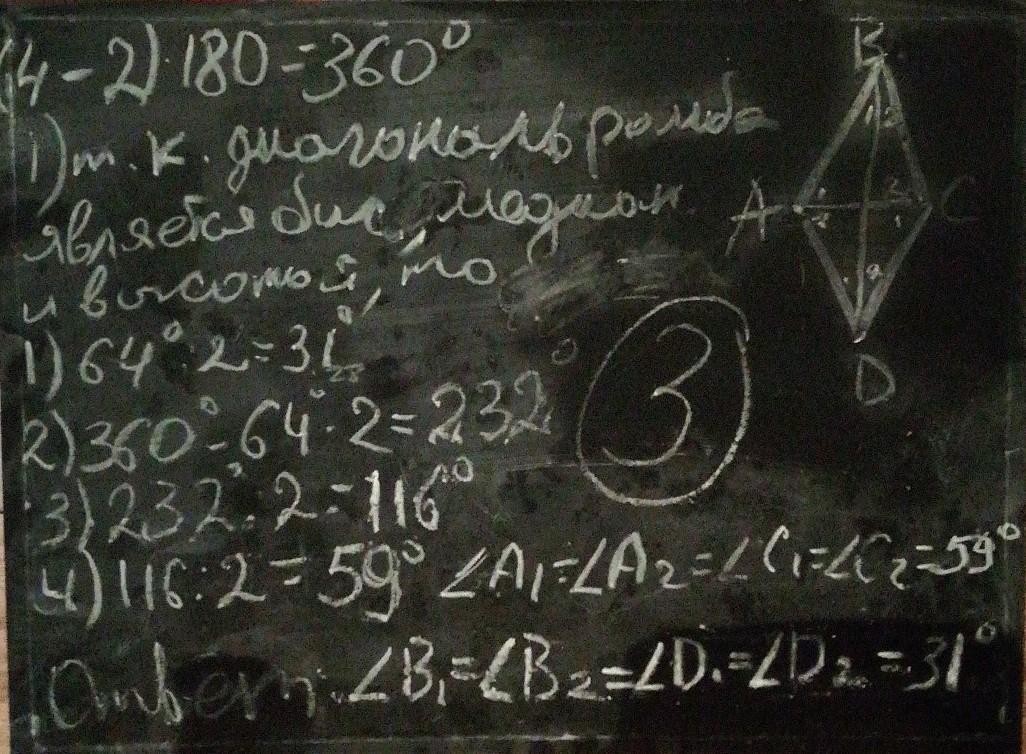 (4-2)·180=360°
1) т.к. диагональ ромба
является бис, медиан.
и высотой, то
1) 64°:2=31°
2) 360°-64°·2=232°
3) 232°:2=116°
4) 116:2=59° ∠A₁=∠A₂=∠C₁=∠C₂=59°
Ответ: ∠B₁=∠B₂=∠D₁=∠D₂=31°
3
B
1 2
A
1
2
2
1
C
1 2
D